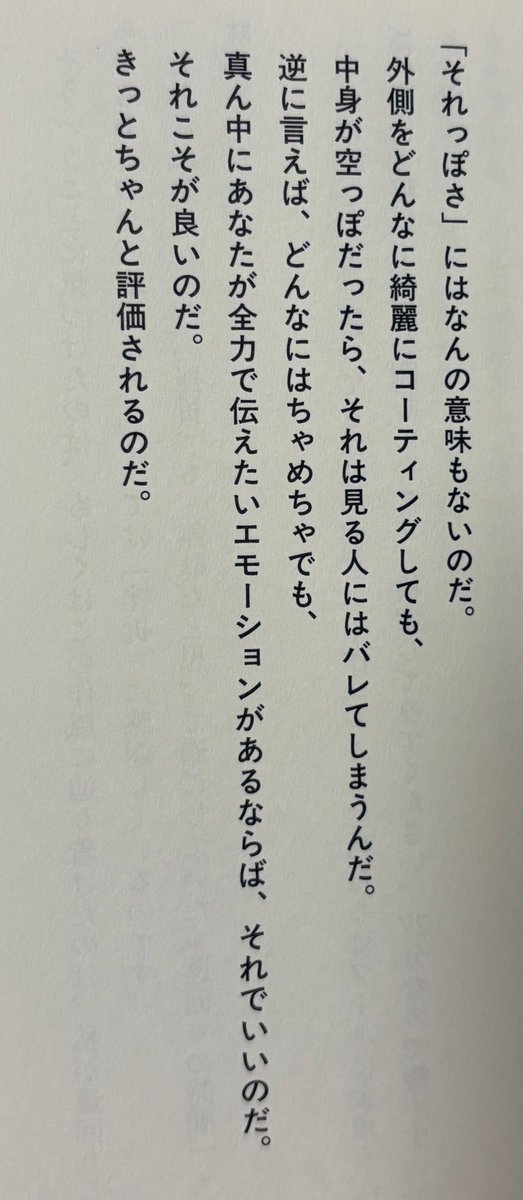 「それっぽさ」にはなんの意味もないのだ。
外側をどんなに綺麗にコーティングしても、
中身が空っぽだったら、それは見る人にはバレてしまうんだ。
逆に言えば、どんなにはちゃめちゃでも、
真ん中にあなたが全力で伝えたいエモーションがあるならば、それでいいのだ。
それこそが良いのだ。
きっとちゃんと評価されるのだ。